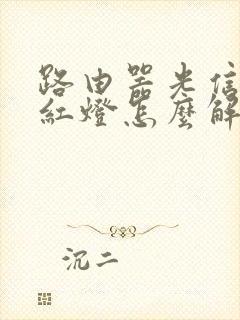 路由器光信
紅燈怎麼解
沉二